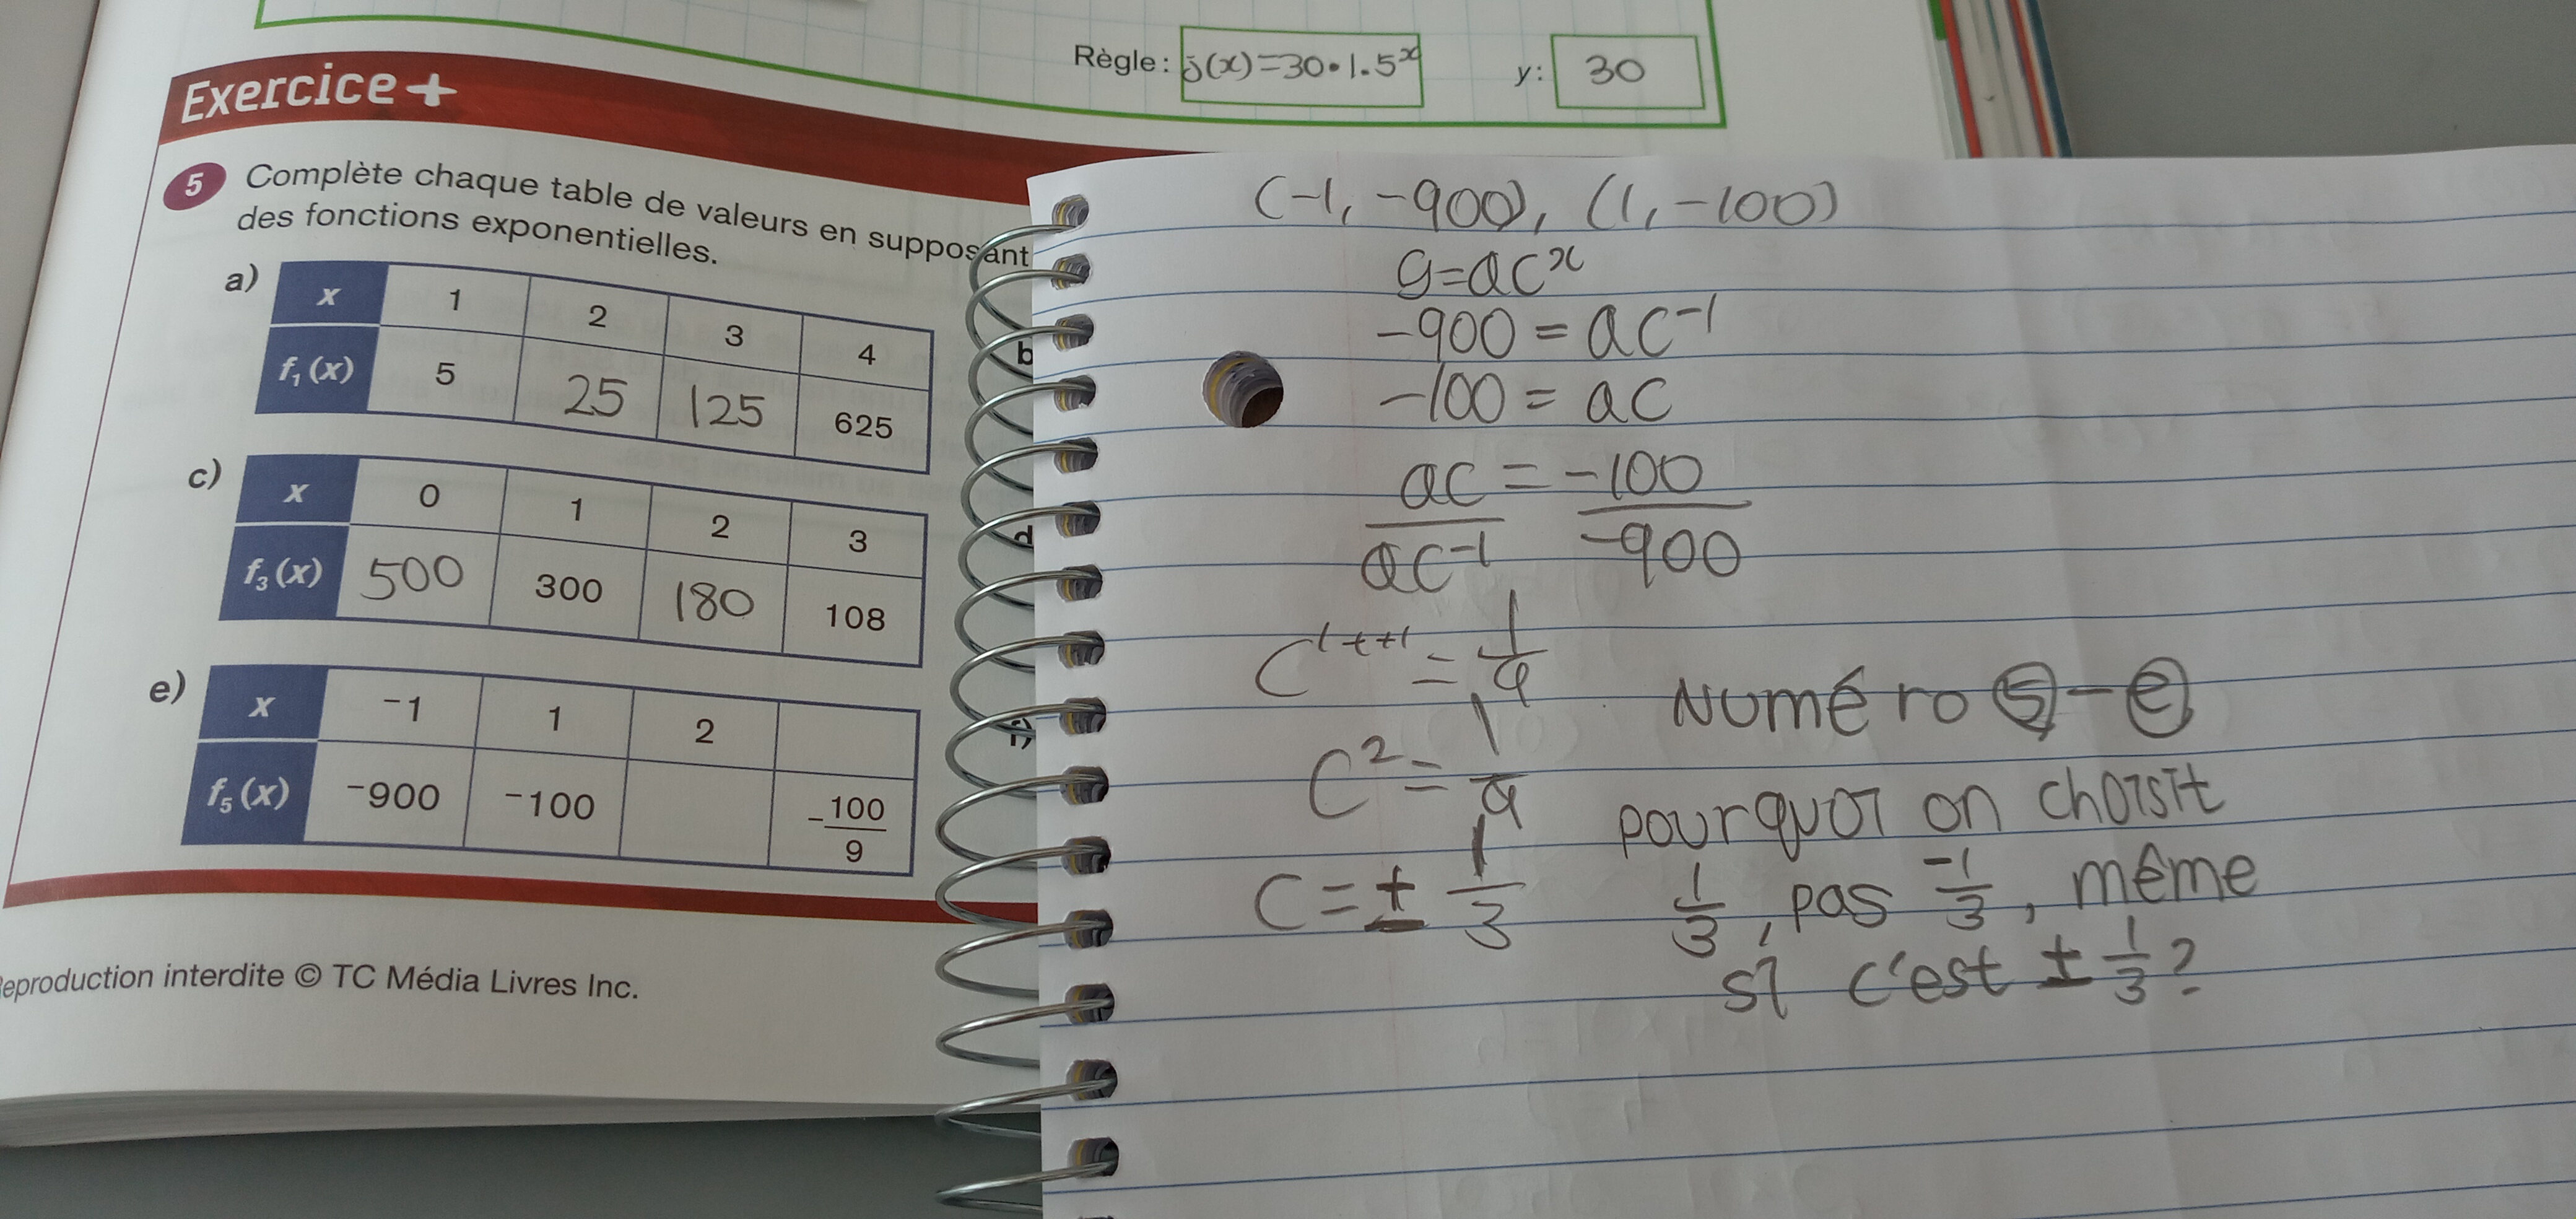 Règle : j(x)=30•1.5ˣ y: 30
Exercice +
5 Complète chaque table de valeurs en supposant
des fonctions exponentielles.
a) x 1 2 3 4
f₁(x) 5 25 125 625
b
c) x 0 1 2 3
f₃(x) 500 300 180 108
d
e) x ⁻1 1 2
f₅(x) ⁻900 ⁻100 -100/9
f)
Reproduction interdite © TC Média Livres Inc.
(-1, -900), (1, -100)
y=acˣ
-900 = ac⁻¹
-100 = ac
ac/ac⁻¹ = -100/-900
c¹⁺⁺¹ = 1/9
c² = 1/9
c = ± 1/3
Numéro 5 - e
pourquoi on choisit
1/3, pas -1/3, même
si c'est ± 1/3?